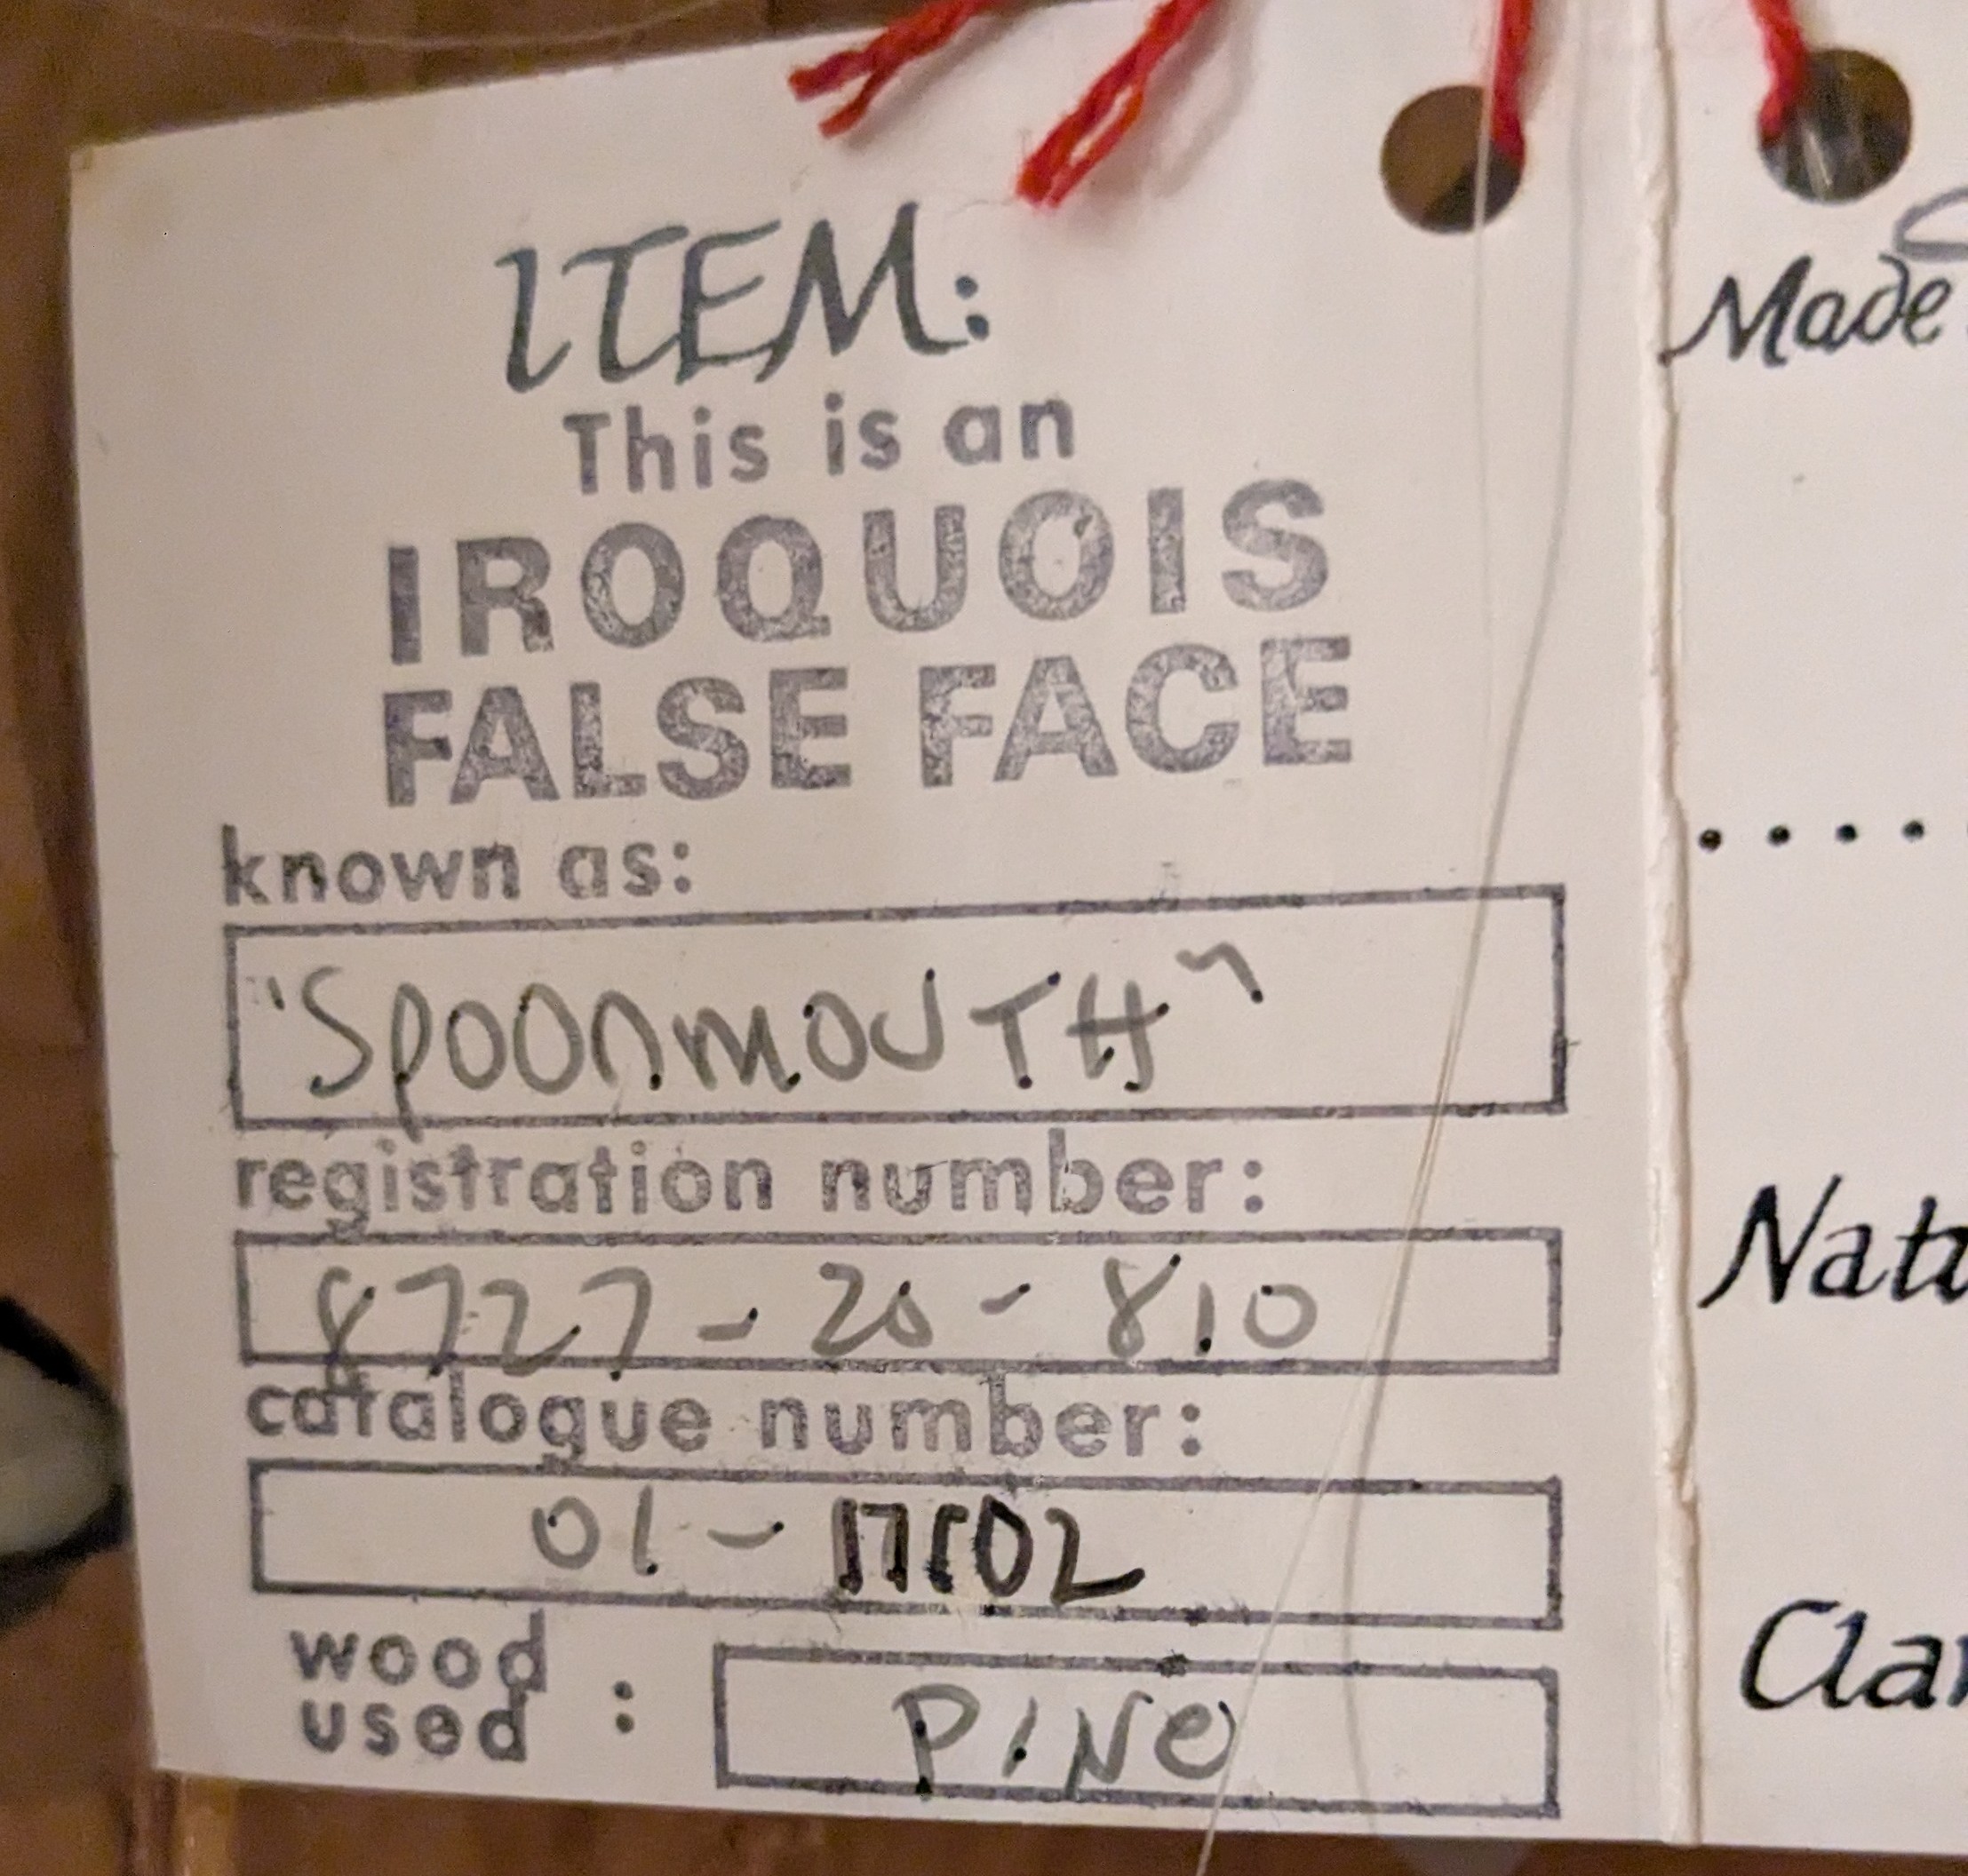 ITEM:
This is an
IROQUOIS
FALSE FACE
known as:
"SpOOnmOUTH"
registration number:
8727 - 20 - 810
catalogue number:
01 -
wood
used :
PINe
Made
....
Natu
Clan